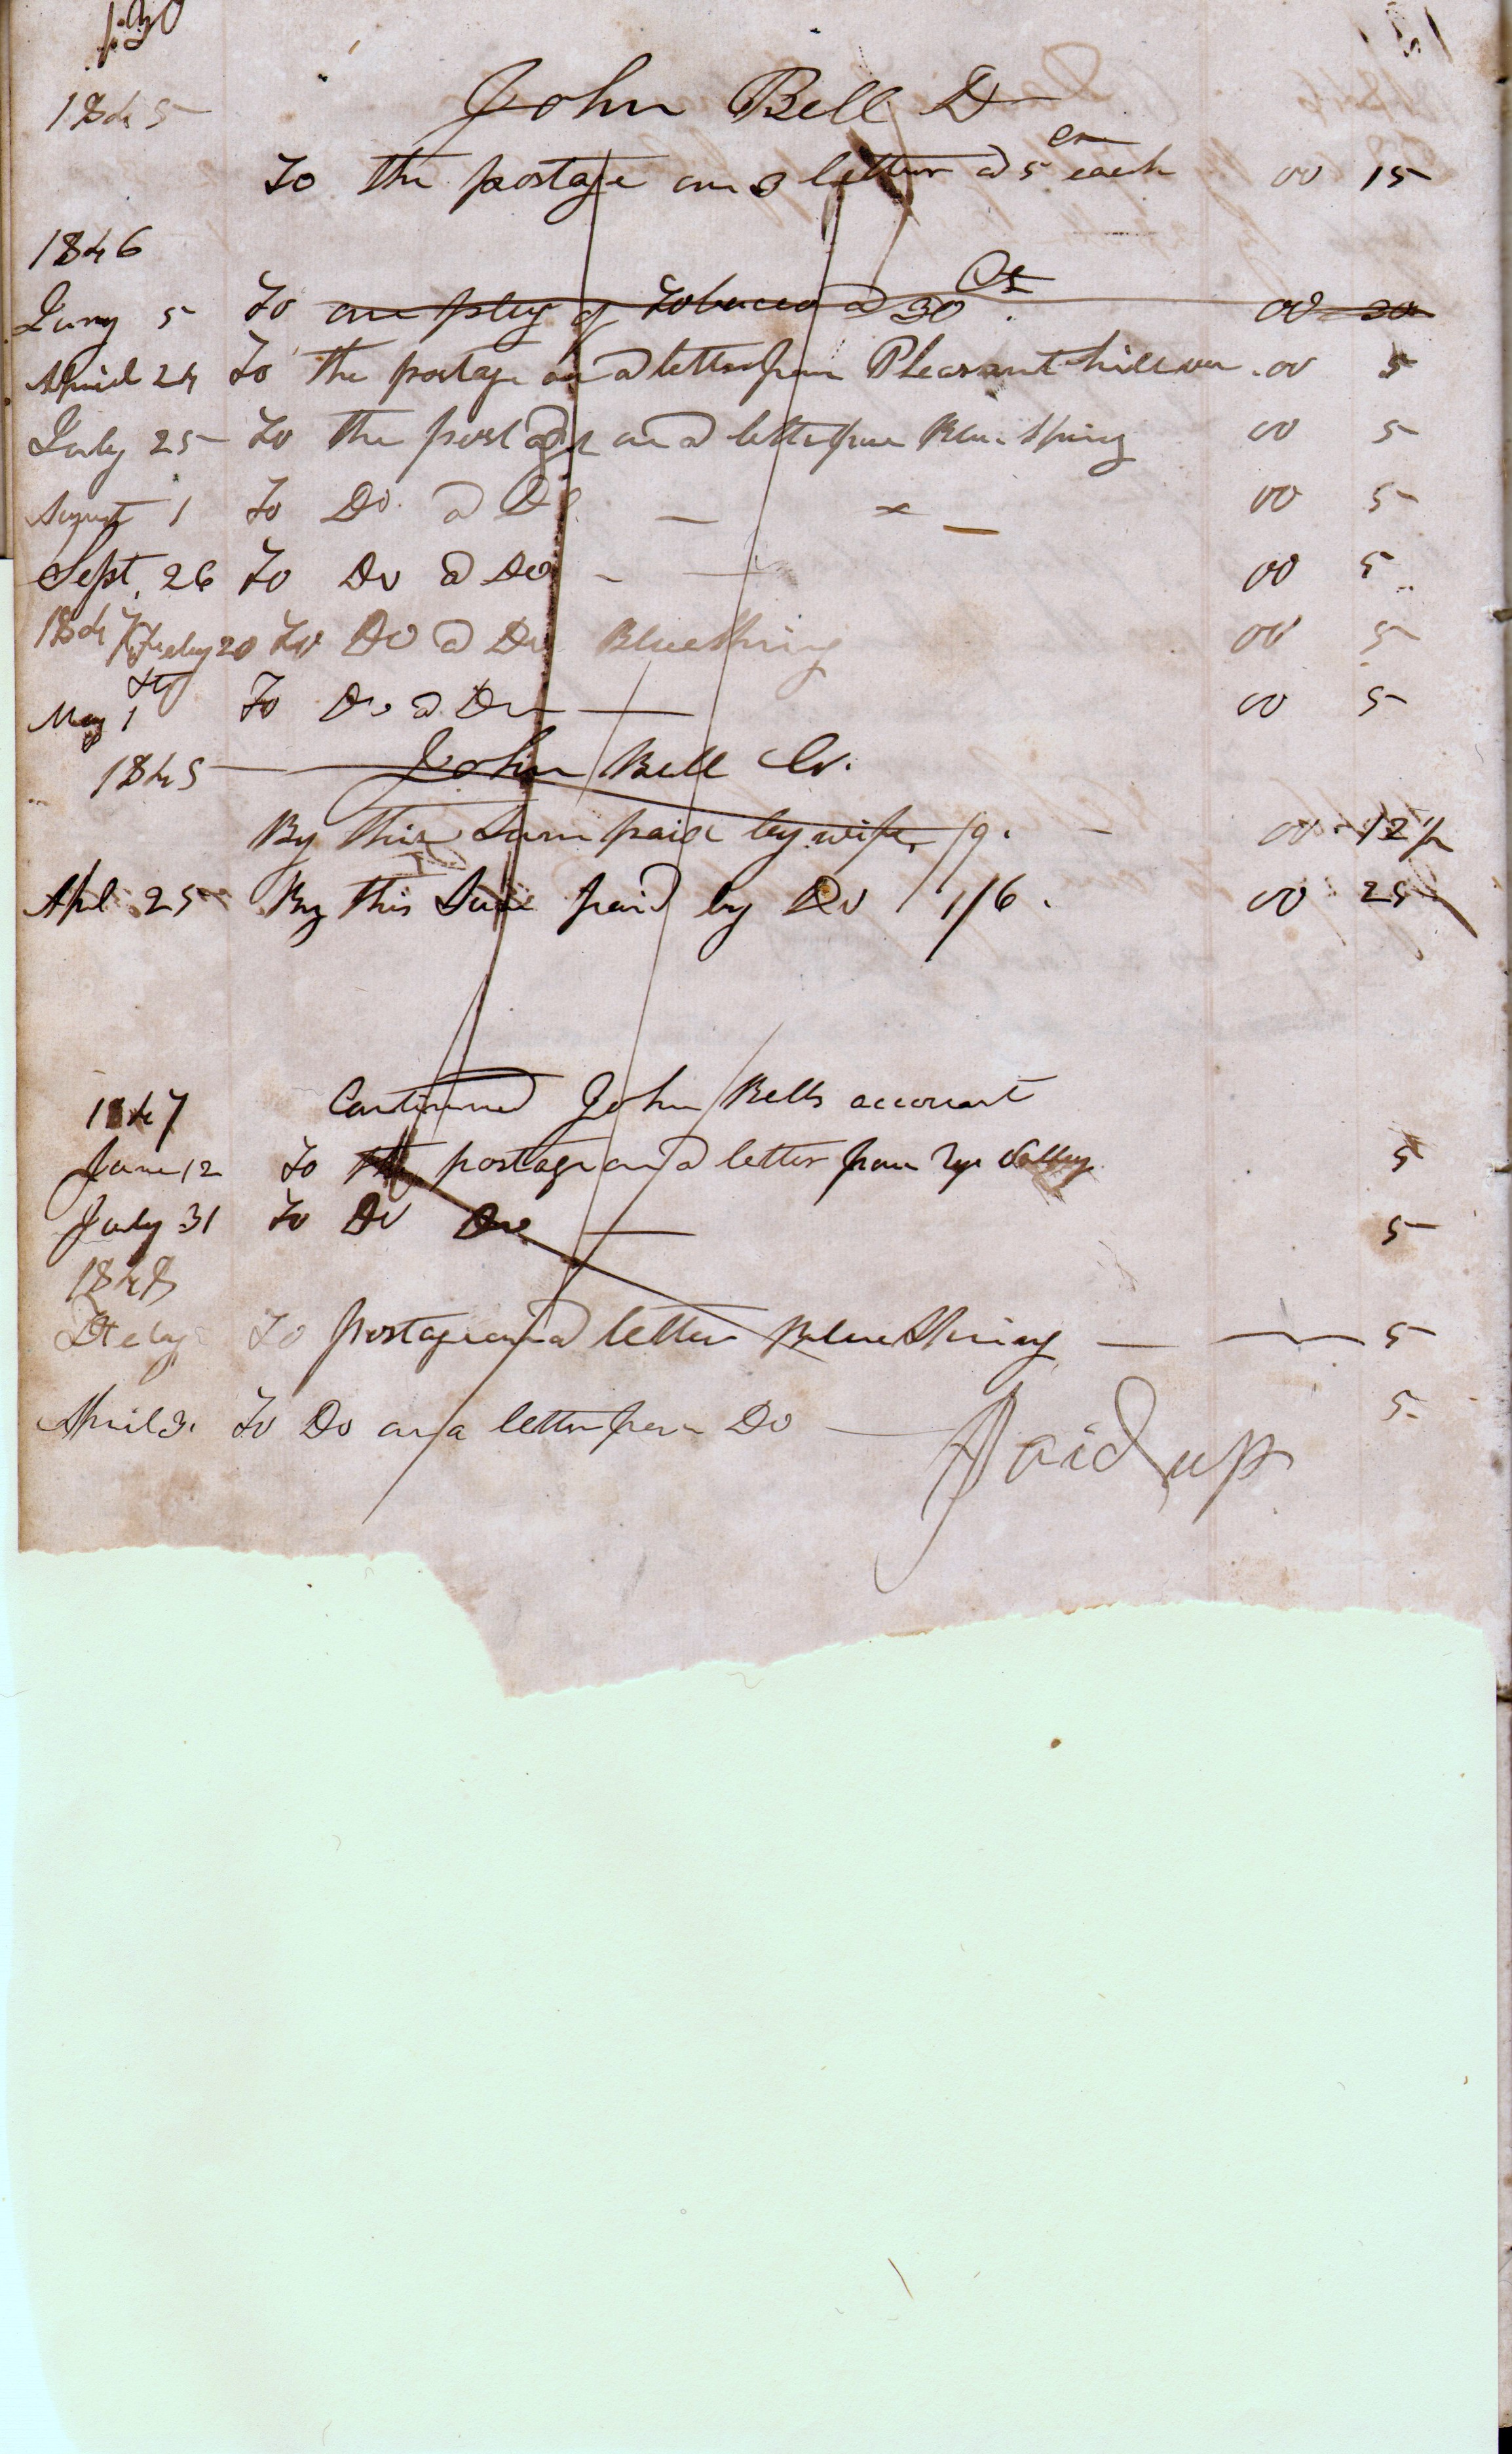 130
1845 John Bell Dr
To the postage on 3 letters @ 5 cn each 00 15
1846
Jany 5 To one plug of Tobacco @ 30 Cts 00 30
April 24 To the postage on a letter from Pleasant hill 00 5
July 25 To the postage on a letter from Blue Spring 00 5
August 1 To Do @ Do 00 5
Sept. 26 To Do @ Do 00 5
1847 Feby 20 To Do @ Do Blue Spring 00 5
May 1 To Do @ Do 00 5
1845 John Bell Cr.
By this Sum paid by wife /9. 00 12 1/2
Apl 25 By this Sum paid by Do 1/6. 00 25
1847 Continued John Bells account
June 12 To postage on a letter from valley 5
July 31 To Do Do 5
1848
To postage on a letter Blue Spring 5
April 3. To Do on a letter from Do 5.
Paid up